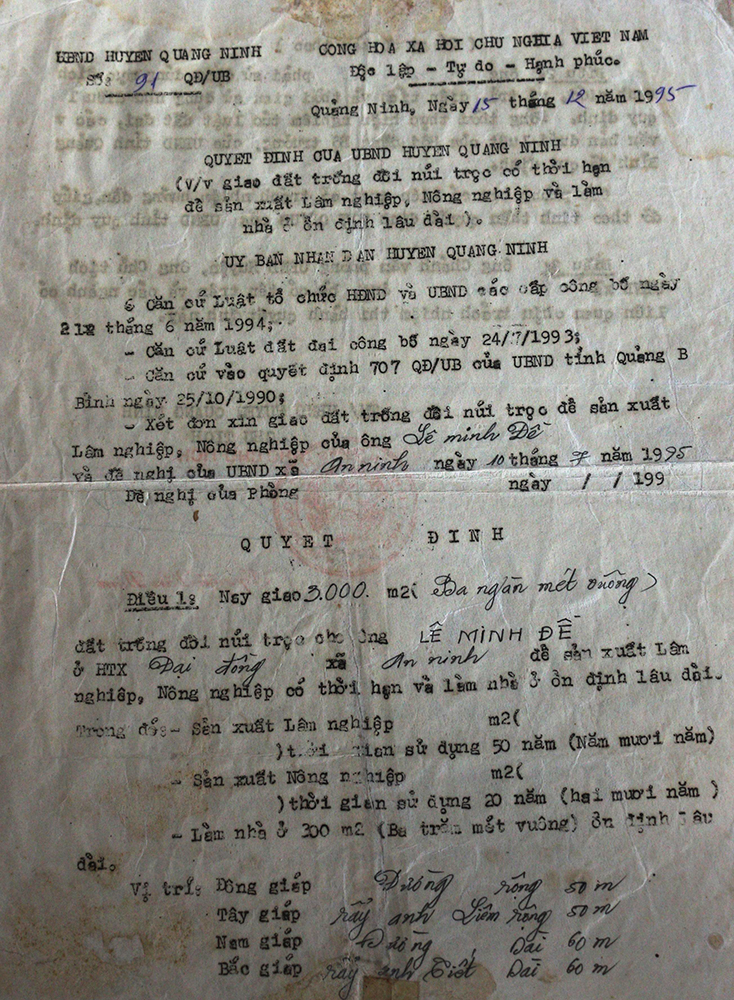 UBND HUYEN QUANG NINH CONG HOA XA HOI CHU NGHIA VIET NAM
Số: 91 QĐ/UB Độc lập - Tự do - Hạnh phúc.
Quảng Ninh, Ngày 15 tháng 12 năm 1995
QUYET ĐINH CUA UBND HUYEN QUANG NINH
(V/v giao đất trống đồi núi trọc có thời hạn
để sản xuất Lâm nghiệp, Nông nghiệp và làm
nhà ở ổn định lâu dài ).
UY BAN NHAN DAN HUYEN QUANG NINH
Căn cứ Luật tổ chức HĐND và UBND các cấp công bố ngày
tháng 6 năm 1994;
- Căn cứ Luật đất đai công bố ngày 24/7/1993;
- Căn cứ vào quyết định 707 QĐ/UB của UBND tỉnh Quảng B
Bình ngày 25/10/1990;
- Xét đơn xin giao đất trống đồi núi trọc để sản xuất
Lâm nghiệp, Nông nghiệp của ông Lê minh Đề
và đề nghị của UBND xã An ninh ngày 10 tháng 7 năm 1995
Đề nghị của Phòng ngày / / 199
QUYET ĐINH
Điều 1: Nay giao 3.000. m2( Ba ngàn mét vuông )
đất trống đồi núi trọc cho ông LÊ MINH ĐỀ
ở HTX Đại đồng xã An ninh để sản xuất Lâm
nghiệp, Nông nghiệp có thời hạn và làm nhà ở ổn định lâu dài.
Trong đó:- Sản xuất Lâm nghiệp m2(
)thời gian sử dụng 50 năm (Năm mươi năm)
- Sản xuất Nông nghiệp m2(
)thời gian sử dụng 20 năm (hai mươi năm )
- Làm nhà ở 300 m2 (Ba trăm mét vuông) ổn định lâu
dài.
Vị trí: Đông giáp Đường rộng 50 m
Tây giáp rẫy anh Liêm rộng 50 m
Nam giáp Đường Dài 60 m
Bắc giáp rẫy anh Tiết Dài 60 m